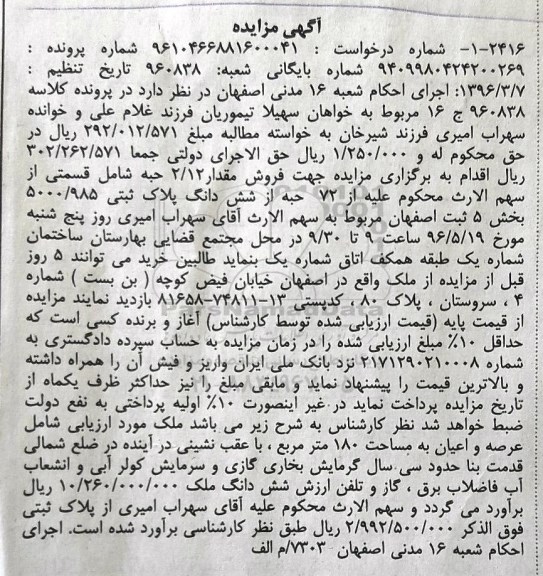 آگهی مزایده
۱-۲۴۱۶- شماره درخواست : ۹۶۱۰۴۶۶۸۸۱۶۰۰۰۴۱ شماره پرونده :
۹۴۰۹۹۸۰۴۲۴۲۰۰۲۶۹ شماره بایگانی شعبه: ۹۶۰۸۳۸ تاریخ تنظیم :
۱۳۹۶/۳/۷: اجرای احکام شعبه ۱۶ مدنی اصفهان در نظر دارد در پرونده کلاسه
۹۶۰۸۳۸ ج ۱۶ مربوط به خواهان سهیلا تیموریان فرزند غلام علی و خوانده
سهراب امیری فرزند شیرخان به خواسته مطالبه مبلغ ۲۹۲/۰۱۲/۵۷۱ ریال در
حق محکوم له و ۱/۲۵۰/۰۰۰ ریال حق الاجرای دولتی جمعا ۳۰۲/۲۶۲/۵۷۱
ریال اقدام به برگزاری مزایده جهت فروش مقدار۲/۱۲ حبه شامل قسمتی از
سهم الارث محکوم علیه از ۷۲ حبه از شش دانگ پلاک ثبتی ۵۰۰۰/۹۸۵
بخش ۵ ثبت اصفهان مربوط به سهم الارث آقای سهراب امیری روز پنج شنبه
مورخ ۹۶/۵/۱۹ ساعت ۹ تا ۹/۳۰ در محل مجتمع قضایی بهارستان ساختمان
شماره یک طبقه همکف اتاق شماره یک بنماید طالبین خرید می توانند ۵ روز
قبل از مزایده از ملک واقع در اصفهان خیابان فیض کوچه ( بن بست ) شماره
۴ ، سروستان ، پلاک ۸۰ ، کدپستی ۱۳-۷۴۸۱۱-۸۱۶۵۸ بازدید نمایند مزایده
از قیمت پایه (قیمت ارزیابی شده توسط کارشناس) آغاز و برنده کسی است که
حداقل ۱۰٪ مبلغ ارزیابی شده را در زمان مزایده به حساب سپرده دادگستری به
شماره ۲۱۷۱۲۹۰۲۱۰۰۰۸ نزد بانک ملی ایران واریز و فیش آن را همراه داشته
و بالاترین قیمت را پیشنهاد نماید و مابقی مبلغ را نیز حداکثر ظرف یکماه از
تاریخ مزایده پرداخت نماید در غیر اینصورت ۱۰٪ اولیه پرداختی به نفع دولت
ضبط خواهد شد نظر کارشناس به شرح زیر می باشد ملک مورد ارزیابی شامل
عرصه و اعیان به مساحت ۱۸۰ متر مربع ، با عقب نشینی در آینده در ضلع شمالی
قدمت بنا حدود سی سال گرمایش بخاری گازی و سرمایش کولر آبی و انشعاب
آب فاضلاب برق ، گاز و تلفن ارزش شش دانگ ملک ۱۰/۲۶۰/۰۰۰/۰۰۰ ریال
برآورد می گردد و سهم الارث محکوم علیه آقای سهراب امیری از پلاک ثبتی
فوق الذکر ۲/۹۹۲/۵۰۰/۰۰۰ ریال طبق نظر کارشناسی برآورد شده است. اجرای
احکام شعبه ۱۶ مدنی اصفهان ۷۳۰۳/م الف